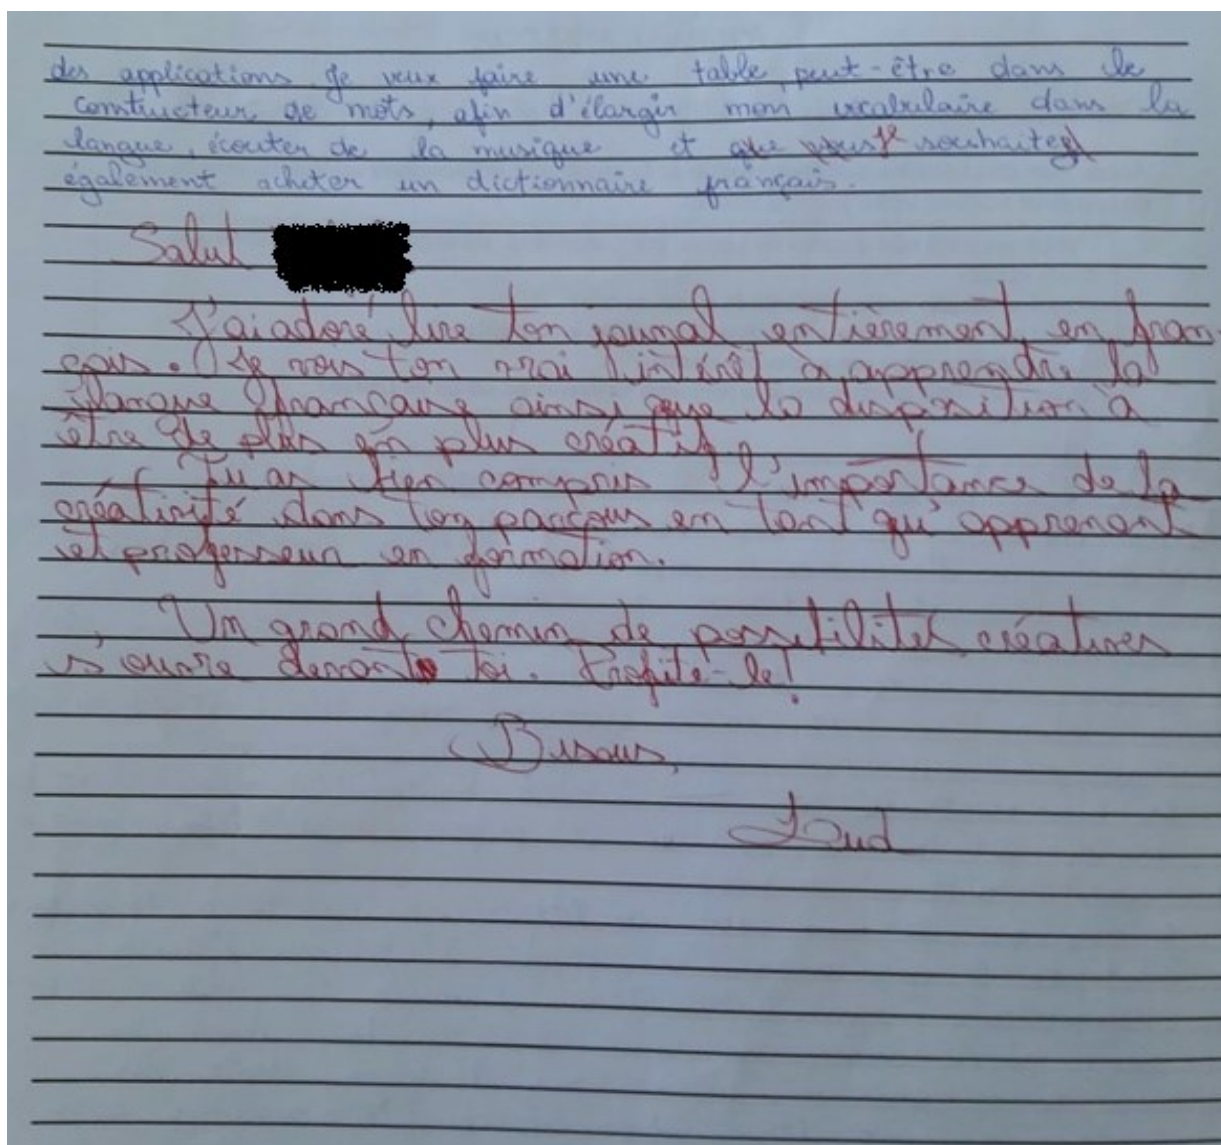 des applications je veux faire une table, peut-être dans le
constructeur de mots, afin d'élargir mon vocabulaire dans la
langue, écouter de la musique et que vous je souhaitez
également acheter un dictionnaire français.
Salut
J'ai adoré lire ton journal entièrement en fran-
çais. Je vois ton vrai intérêt à apprendre la
langue française ainsi que la disposition à
être de plus en plus créatif.
Tu as bien compris l'importance de la
créativité dans ton parcours en tant qu'apprenant
et professeur en formation.
Un grand chemin de possibilités créatives
s'ouvre devant toi. Profite-le!
Bisous,